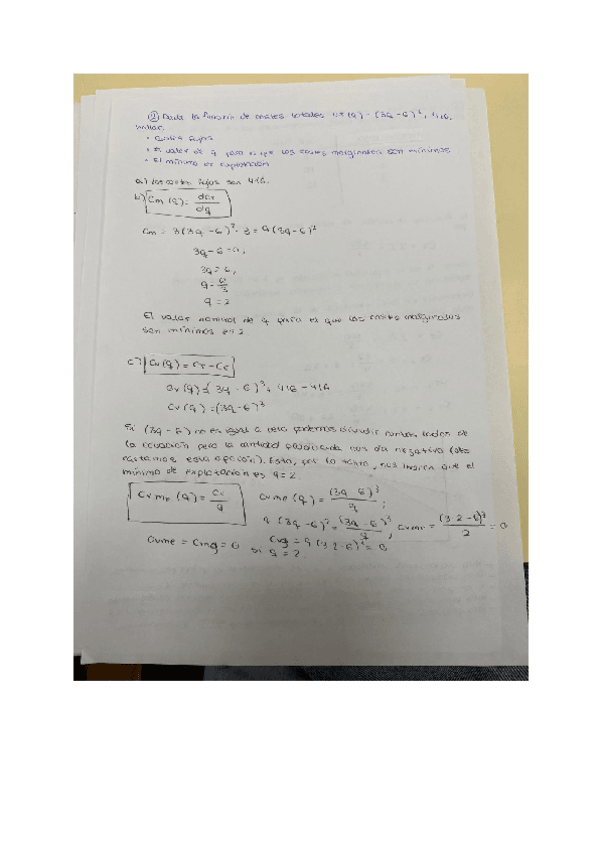 ② Dada la función de costes totales CT(q) = (3q - 6)³ + 416,
hallar:
• Costes fijos
• El valor de q para el que los costes marginales son mínimos
• El mínimo de explotación
a) Los costes fijos son 416.
b) Cm (q) = dCT / dq
Cm = 3(3q - 6)² · 3 = 9(3q - 6)²
3q - 6 = 0;
3q = 6;
q = 6/3
q = 2
El valor de q para el que los costes marginales
son mínimos es 2
c) Cv(q) = CT - CF
Cv(q) = (3q - 6)³ + 416 - 416
Cv(q) = (3q - 6)³
Si (3q - 6) no es igual a cero podemos dividir ambos lados de
la ecuación pero la cantidad producida nos da negativa
esta opción). Esto, por lo tanto, nos indica que el
mínimo de explotación es q = 2.
Cvme (q) = Cv / q
Cvme (q) = (3q - 6)³ / q ;
9 (3q - 6)² = (3q - 6)³ / q ; Cvme = (3·2 - 6)³ / 2 = 0
Cvme = Cmg = 0 9 (3·2 - 6)² = 0
q = 2.